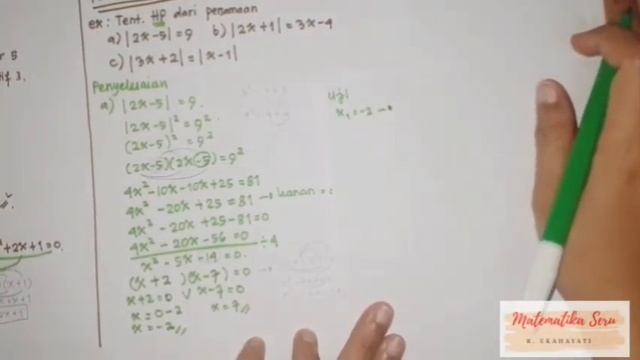 ex: Tent. HP dari persamaan
a) |2x-5| = 9   b) |2x+1| = 3x-4
c) |3x+2| = |x-1|
Penyelesaian
a) |2x-5| = 9.
|2x-5|² = 9²
(2x-5)² = 9²
(2x-5)(2x-5) = 9²
4x²-10x-10x+25 = 81
4x² - 20x + 25 = 81 → kanan =
4x² - 20x + 25-81 = 0
4x² - 20x - 56 = 0 ÷4
x² - 5x - 14 = 0.
(x+2)(x-7) = 0 →
x+2=0 ∨ x-7=0
x = 0-2   x = 7//
x = -2//
Uji
x₁ = -2 →
²+2x+1=0.
Matematika Seru
R. EKAHAYATI